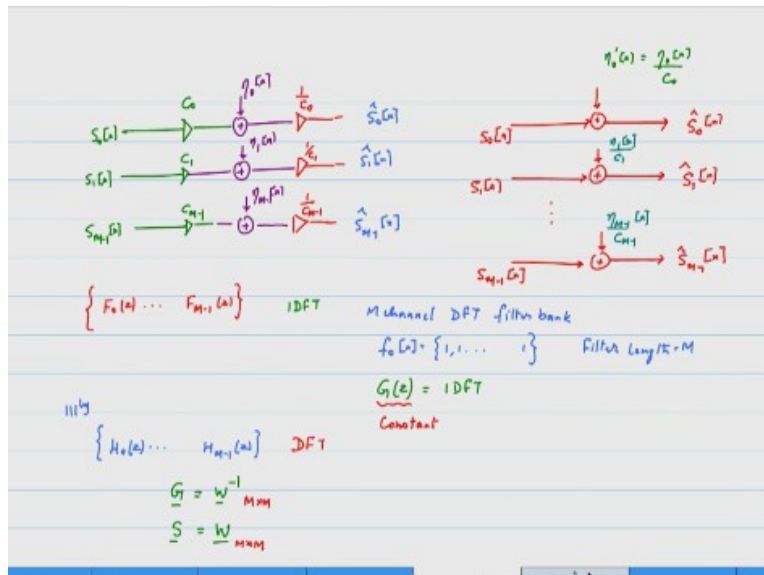 η₀'[n] = η₀[n]/C₀
C₀ η₀[n] 1/C₀
S₀[n] + Ŝ₀[n]
C₁ η₁[n] 1/C₁
S₁[n] + Ŝ₁[n]
C_{M-1} η_{M-1}[n] 1/C_{M-1}
S_{M-1}[n] + Ŝ_{M-1}[n]
S₀[n] + Ŝ₀[n]
η₁[n]/C₁
S₁[n] + Ŝ₁[n]
⋮
η_{M-1}[n]/C_{M-1}
S_{M-1}[n] + Ŝ_{M-1}[n]
{ F₀(z) ... F_{M-1}(z) } IDFT
M channel DFT filter bank
f₀[n] = {1, 1 ... 1} Filter Length = M
G(z) = IDFT
Constant
lllly
{ H₀(z) ... H_{M-1}(z) } DFT
G = W⁻¹ M×M
S = W M×M